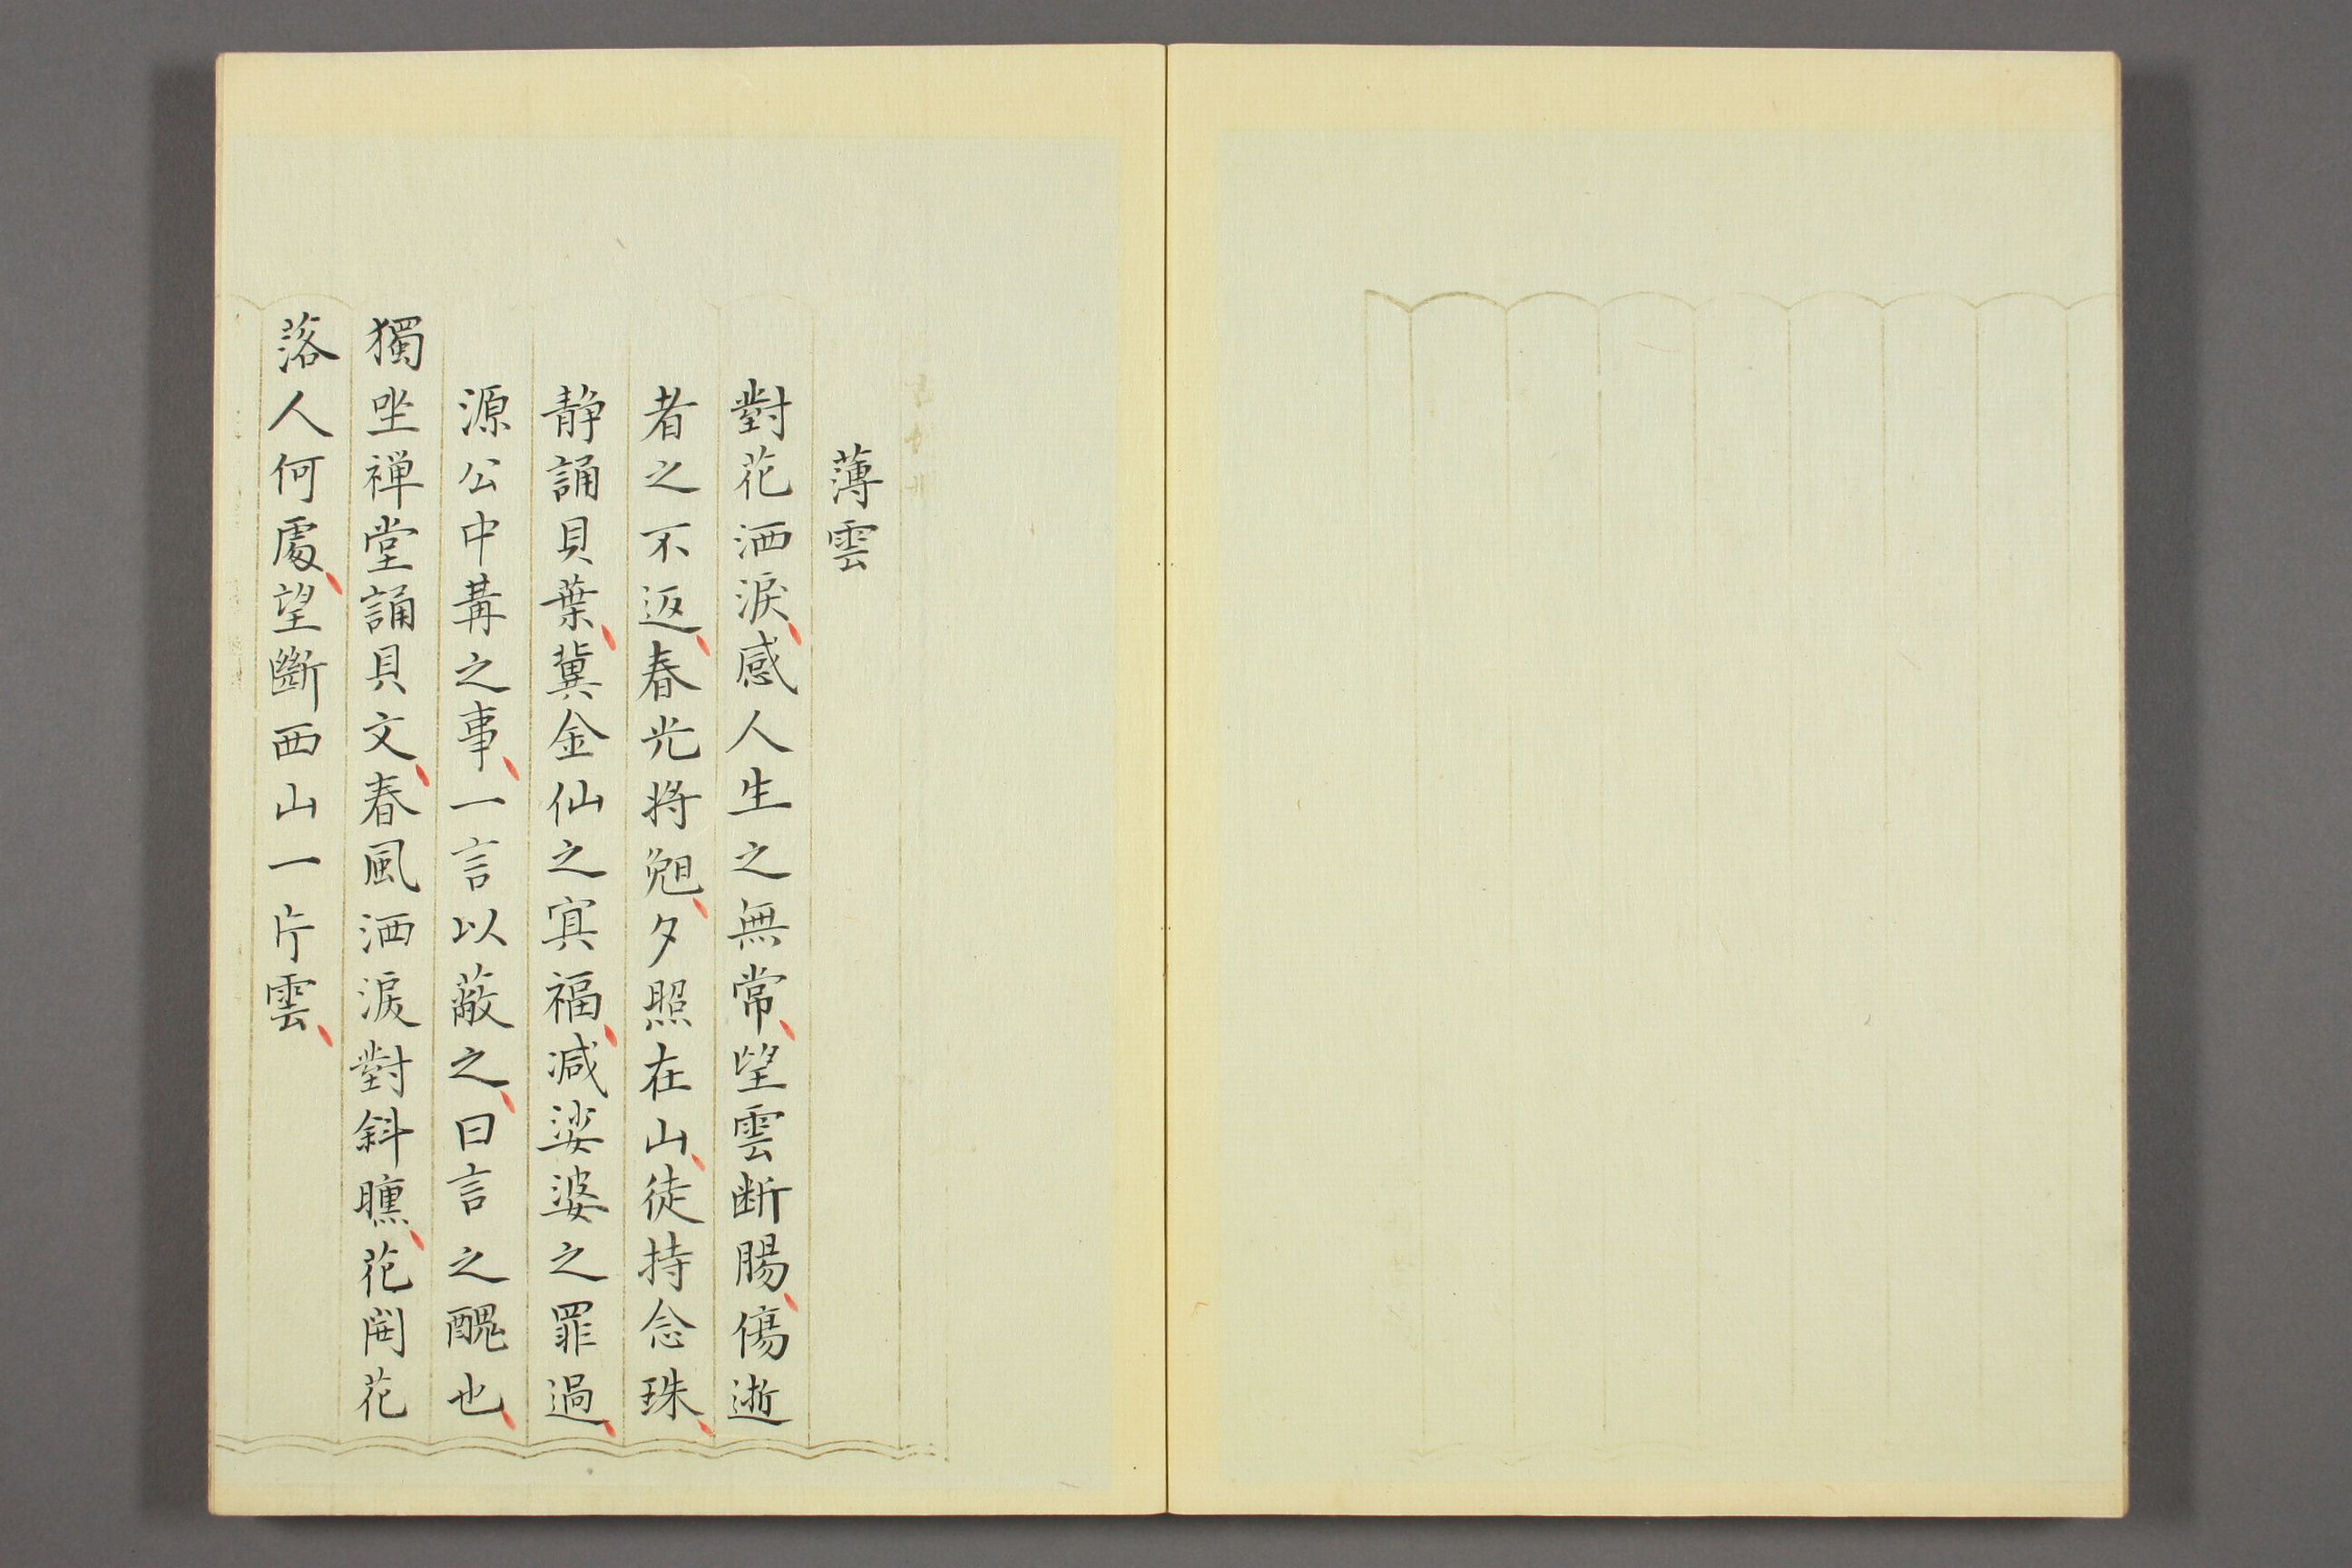 薄雲
對花洒淚感人生之無常望雲断腸傷逝
者之不返春光将䰟夕照在山徒持念珠
静誦貝葉冀金仙之冥福減娑婆之罪過
源公中冓之事一言以蔽之曰言之醜也
獨坐禅堂誦貝文春風洒淚對斜曛花開花
落人何處望斷西山一片雲